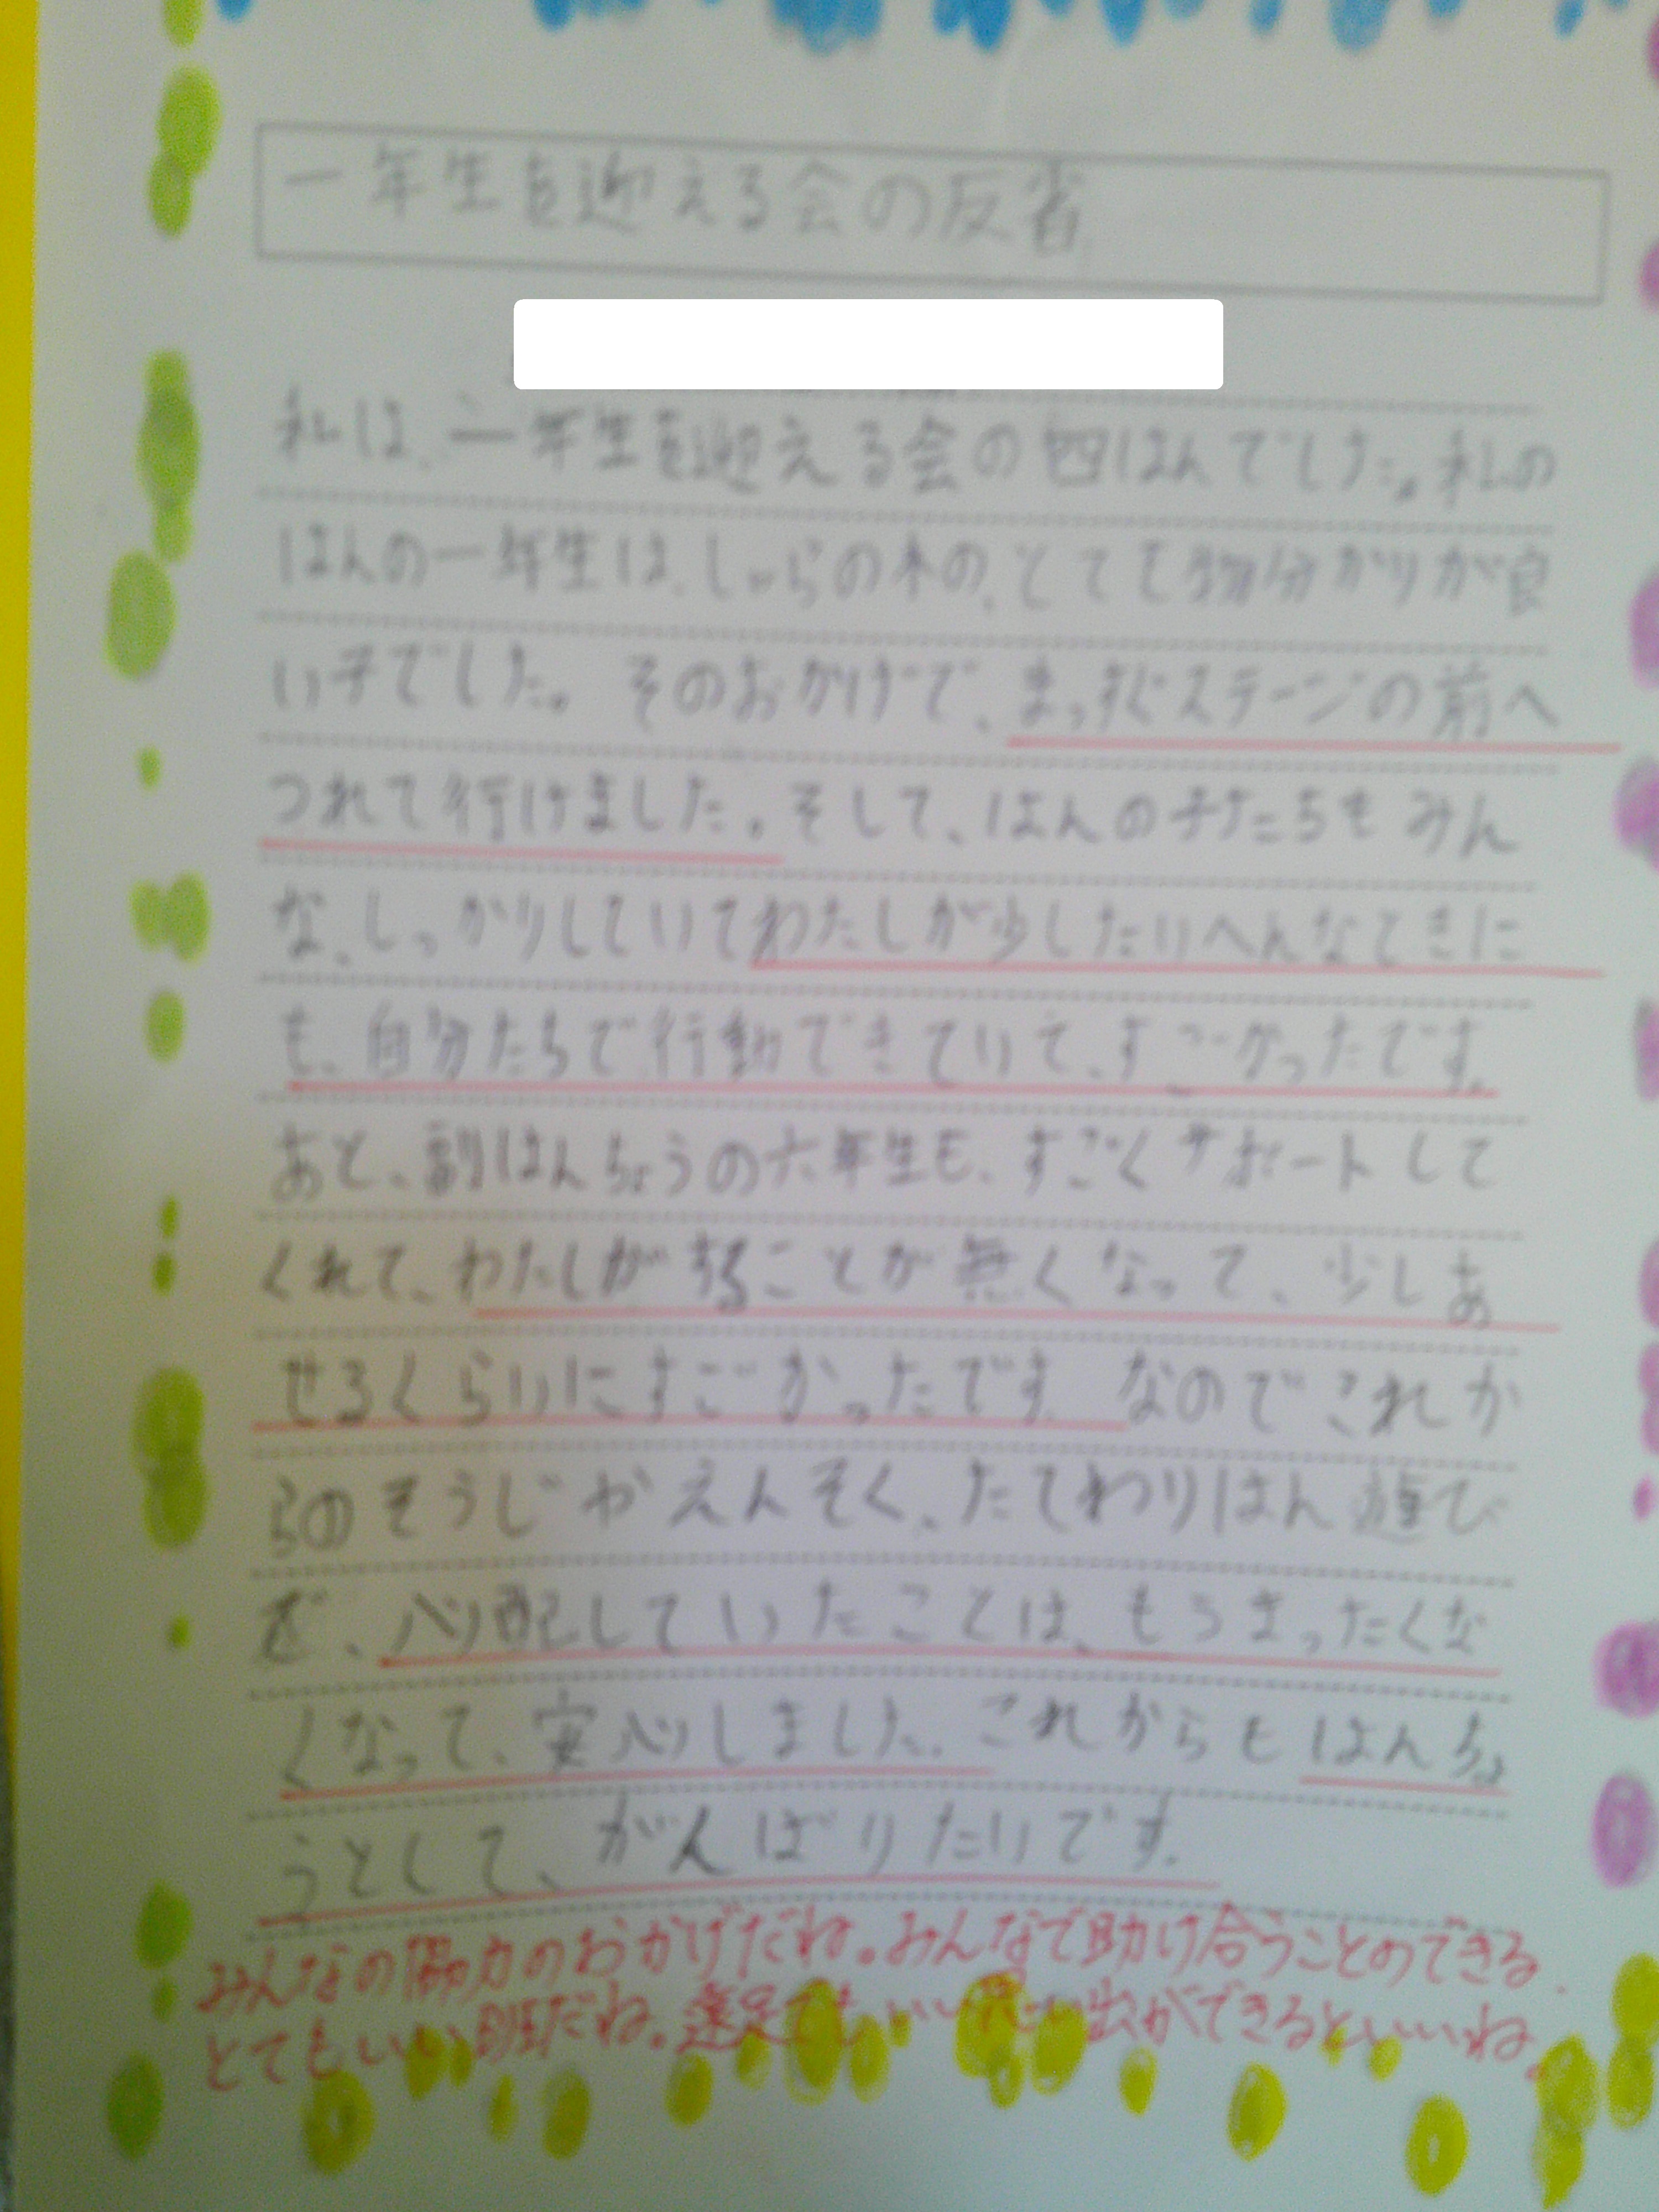 一年生を迎える会の反省
私は、一年生を迎える会の四はんでした。私の
はんの一年生は、しゃらの木の、とても物分かりが良
い子でした。そのおかげで、まっすぐステージの前へ
つれて行けました。そして、はんの子たちもみん
な、しっかりしていてわたしが少したいへんなときに
も、自分たちで行動できていて、すごかったです。
あと、副はんちょうの六年生も、すごくサポートして
くれて、わたしがすることが無くなって、少しあ
せるくらいにすごかったです。なのでこれか
らのそうじやえんそく、たてわりはん遊び
ど、心配していたことは、もうまったくな
くなって、安心しました。これからもはんちょ
うとして、がんばりたいです。
みんなの協力のおかげだね。みんなで助け合うことのできる
とてもいい班だね。遠足でもいい思い出ができるといいね。